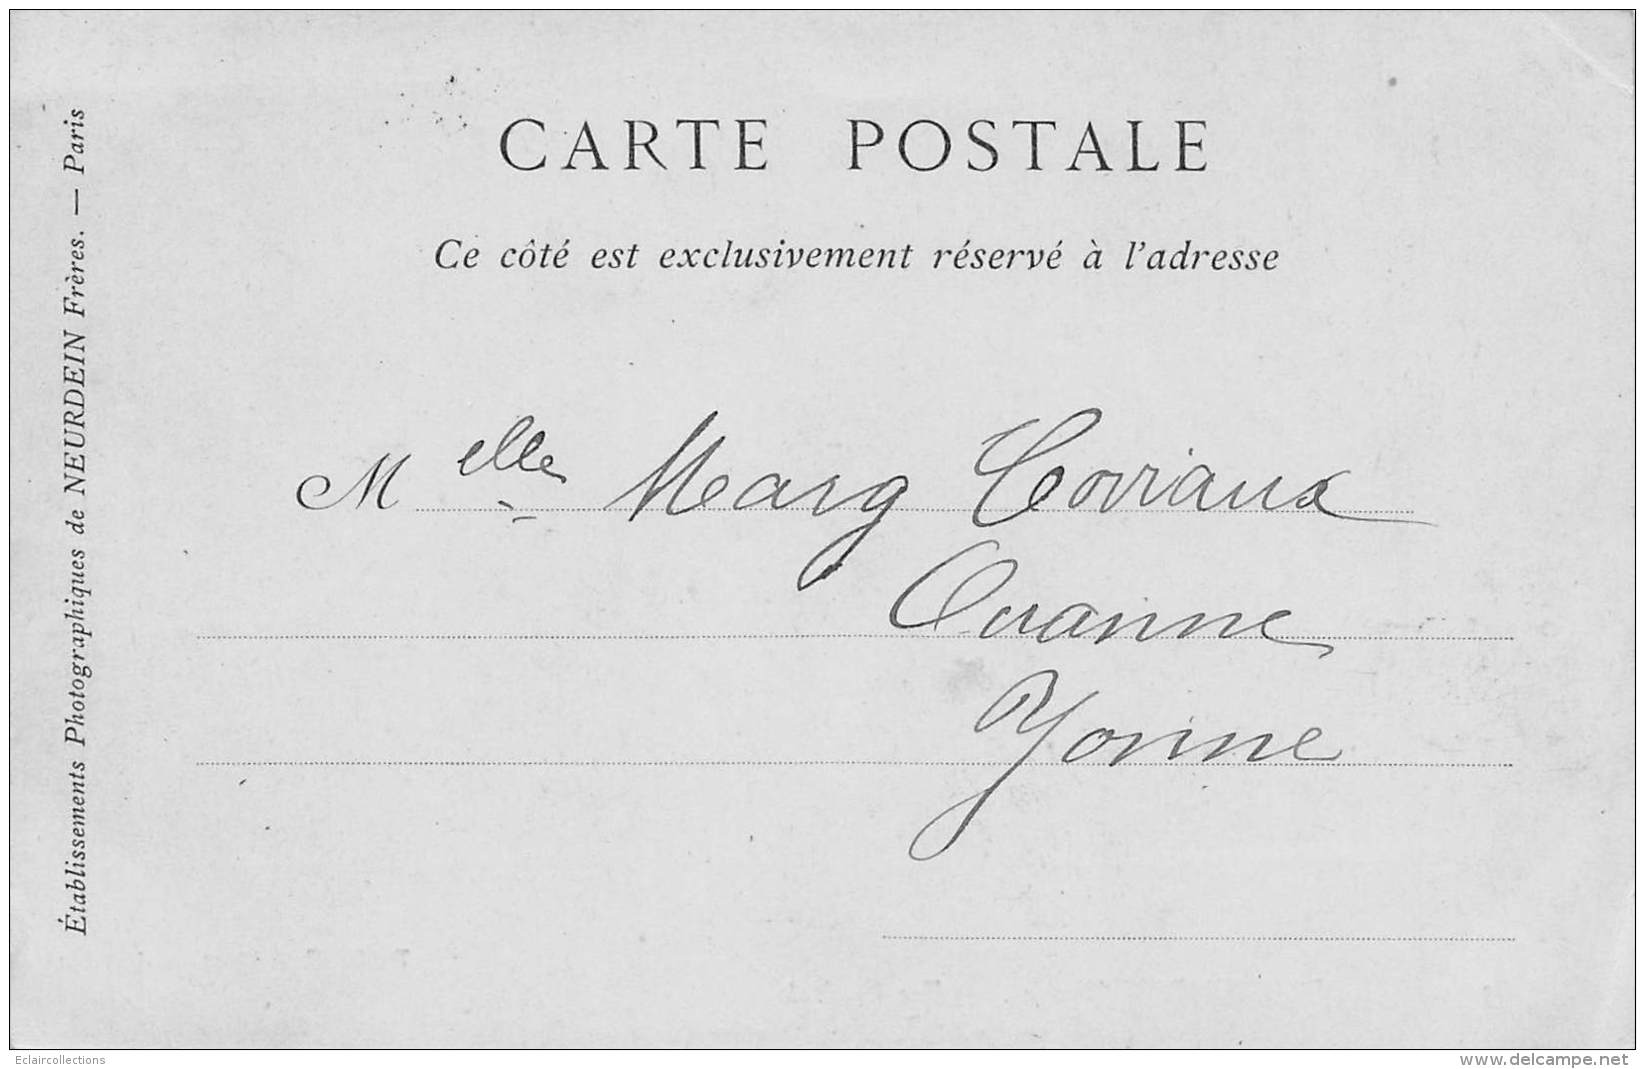 CARTE POSTALE
Ce côté est exclusivement réservé à l'adresse
Melle Marg Corriaux
Ouanne
Yonne
Établissements Photographiques de NEURDEIN Frères. — Paris
Eclaircollections
www.delcampe.net